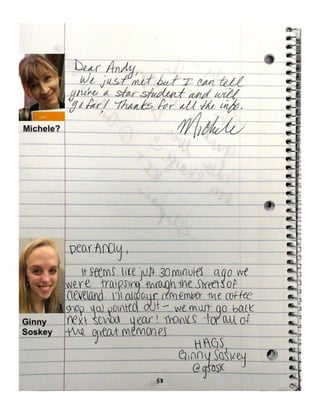 Dear Andy,
We just met but I can tell
you're a star student and will
go far! Thanks for all the info.
Michele
Michele?
Dear Andy,
It seems like just 30 minutes ago we
were traipsing through the streets of
Cleveland. I'll always remember the coffee
shop you pointed out- we must go back
next school year! Thanks for all of
the great memories.
HAGS,
Ginny Soskey
@gsosk
Ginny
Soskey
53